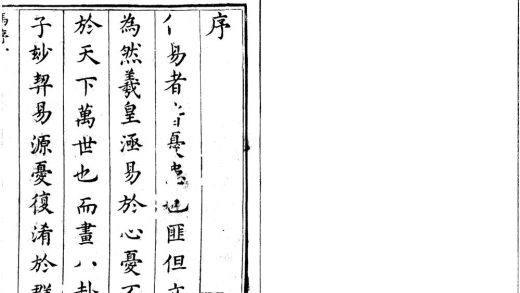 序
易者憂也匪但
為然羲皇極易於心憂
於天下萬世也而畫八卦
子妙契易源憂復淆於群